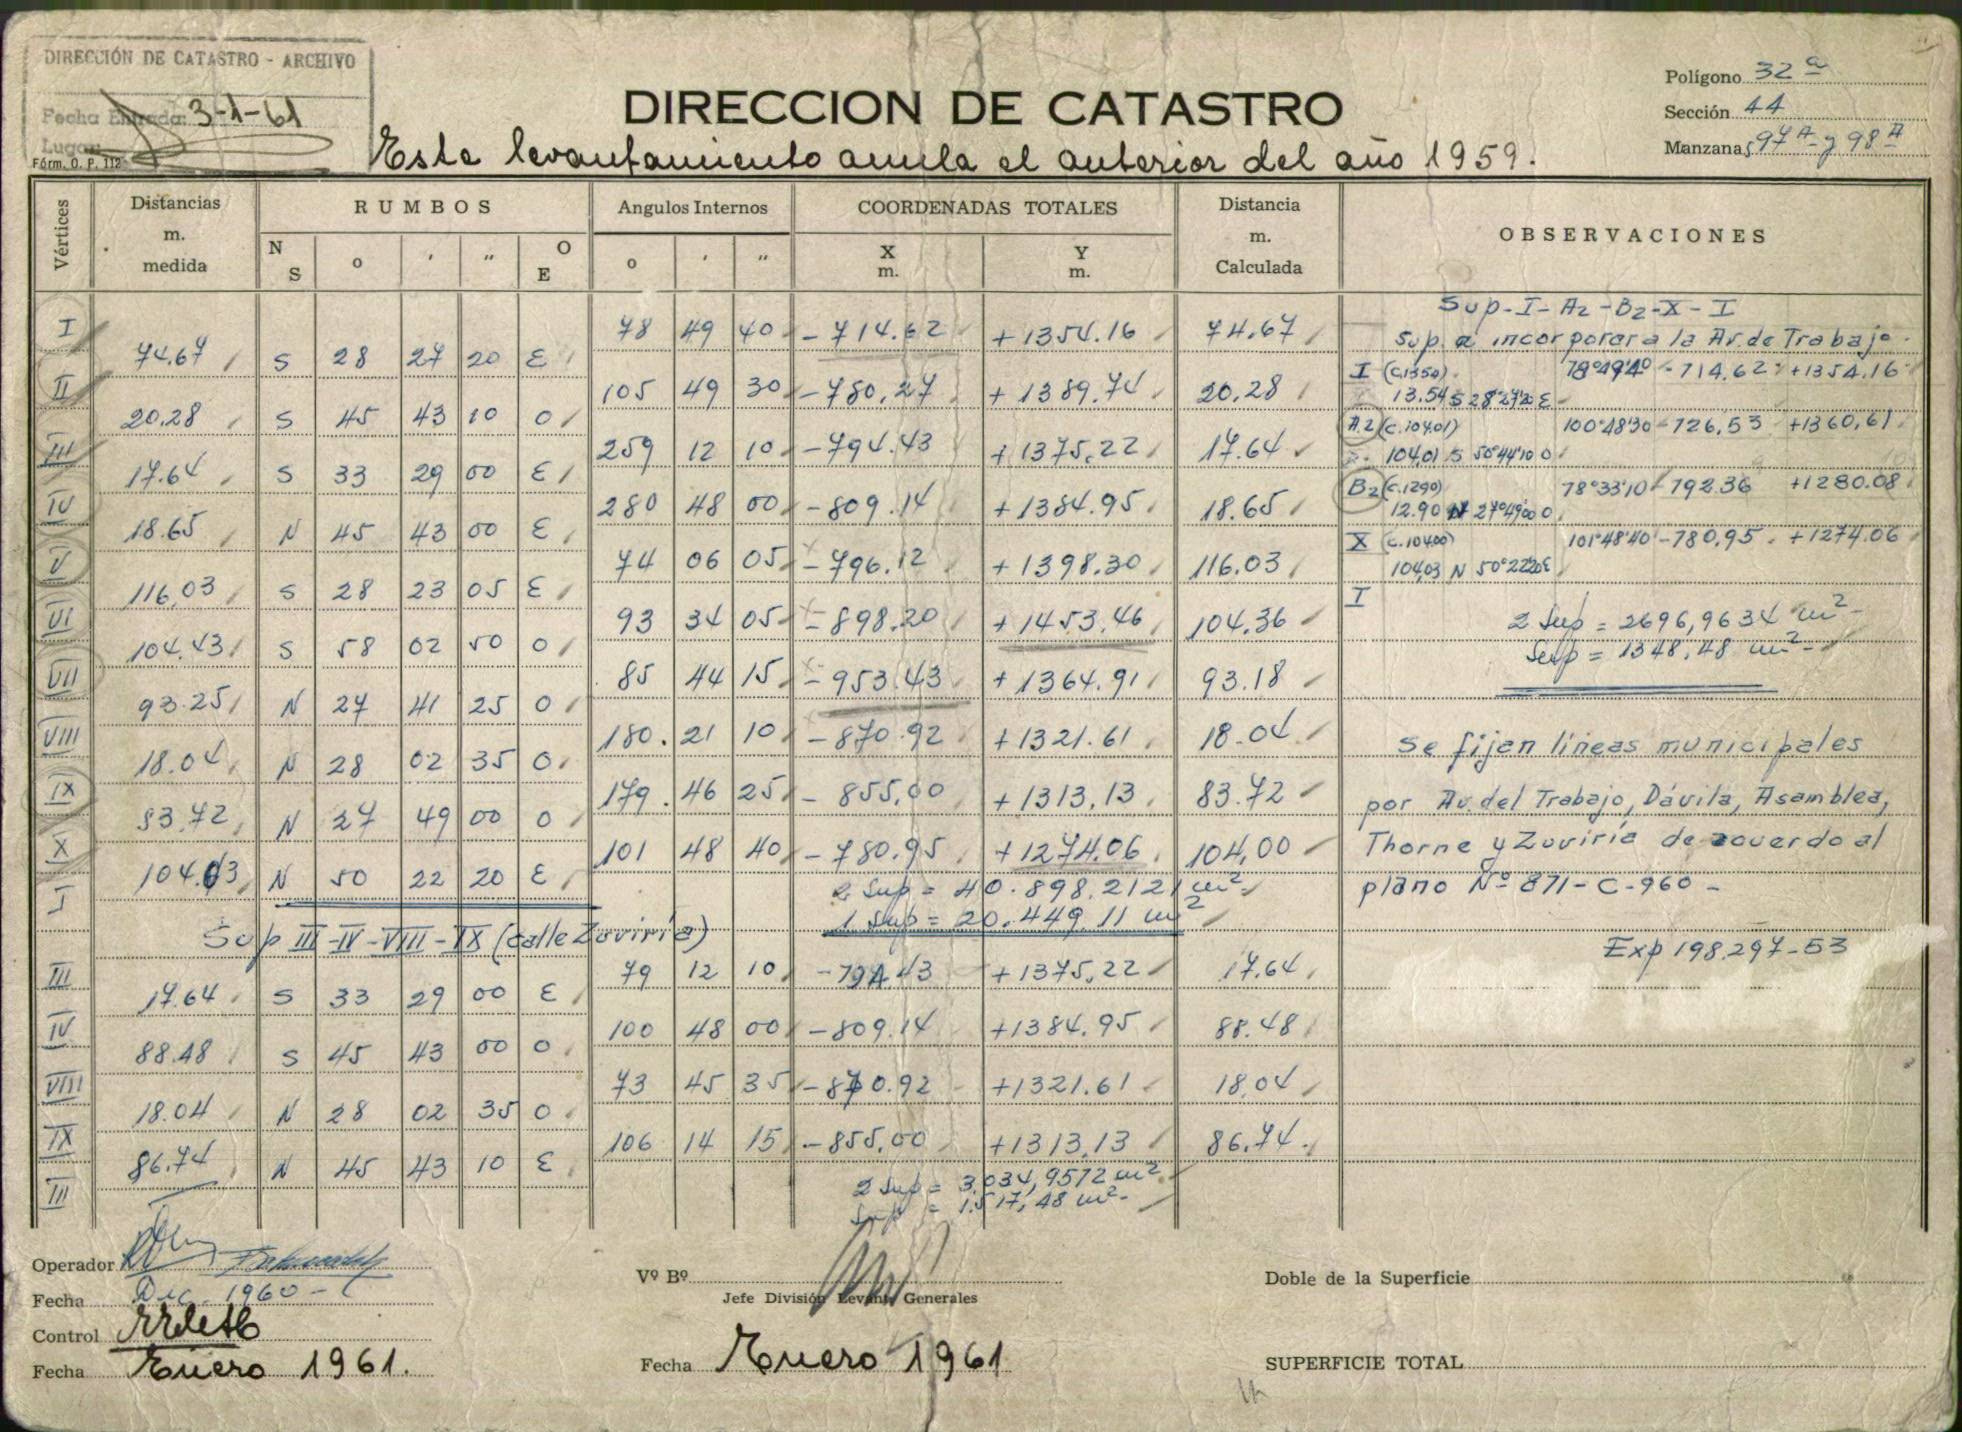 DIRECCIÓN DE CATASTRO - ARCHIVO
Fecha Entrada: 3-1-61
Lugar
Fórm. O. P. 112
DIRECCION DE CATASTRO
Este levantamiento anula el anterior del año 1959.
Polígono 32ª
Sección 44
Manzanas 97A y 98A
Vértices Distancias m. medida RUMBOS Angulos Internos COORDENADAS TOTALES Distancia m. Calculada OBSERVACIONES
N S o ' " O E o ' " X m. Y m.
I 78 49 40 -714.62 +1354.16 74.67
74.67 S 28 27 20 E
II 105 49 30 -780,27 +1389.74 20.28
20.28 S 45 43 10 O
III 259 12 10 -794.43 +1375,22 17.64
17.64 S 33 29 00 E
IV 280 48 00 -809.14 +1384.95 18.65
18.65 N 45 43 00 E
V 74 06 05 -796.12 +1398.30 116.03
116,03 S 28 23 05 E
VI 93 34 05 -898.20 +1453.46 104.36
104.43 S 58 02 50 O
VII 85 44 15 -953.43 +1364.91 93.18
93.25 N 27 41 25 O
VIII 180. 21 10 -870.92 +1321.61 18.04
18.04 N 28 02 35 O
IX 179. 46 25 -855,00 +1313,13 83.72
83.72 N 27 49 00 O
X 101 48 40 -780.95 +1274.06 104,00
104.03 N 50 22 20 E
I
2 Sup = 40.898.2121 m²
1 Sup = 20.449.11 m²
Sup III-IV-VIII-IX (calle Zuviría)
III 79 12 10 -794.43 +1375,22 17.64
17.64 S 33 29 00 E
IV 100 48 00 -809.14 +1384.95 88.48
88.48 S 45 43 00 O
VIII 73 45 35 -870.92 +1321.61 18,04
18.04 N 28 02 35 O
IX 106 14 15 -855,00 +1313,13 86.74
86.74 N 45 43 10 E
III
2 Sup = 3.034,9572 m²
Sup = 1.517,48 m²
Sup-I-A2-B2-X-I
Sup. a incorporar a la Av. de Trabajo.
I (C.1350) 78°49'40 -714,62 +1354.16
13.54 S 28°27'20 E
A2 (C.10401) 100°48'30 -726,53 +1360,61
104,01 S 50°44'10 O
B2 (C.1290) 78°33'10 -792.36 +1280.08
12.90 N 27°49'00 O
X (C.10400) 101°48'40 -780,95 +1274.06
104,03 N 50°22'20 E
I
2 Sup = 2696,9634 m²
Sup = 1348,48 m²
Se fijan líneas municipales
por Av. del Trabajo, Dávila, Asamblea,
Thorne y Zuviría de acuerdo al
plano Nº 871-C-960 -
Exp 198.297-53
Operador
Fecha Dic. 1960 -
Control
Fecha Enero 1961.
Vº Bº
Jefe División Levant. Generales
Fecha Enero 1961
Doble de la Superficie
SUPERFICIE TOTAL